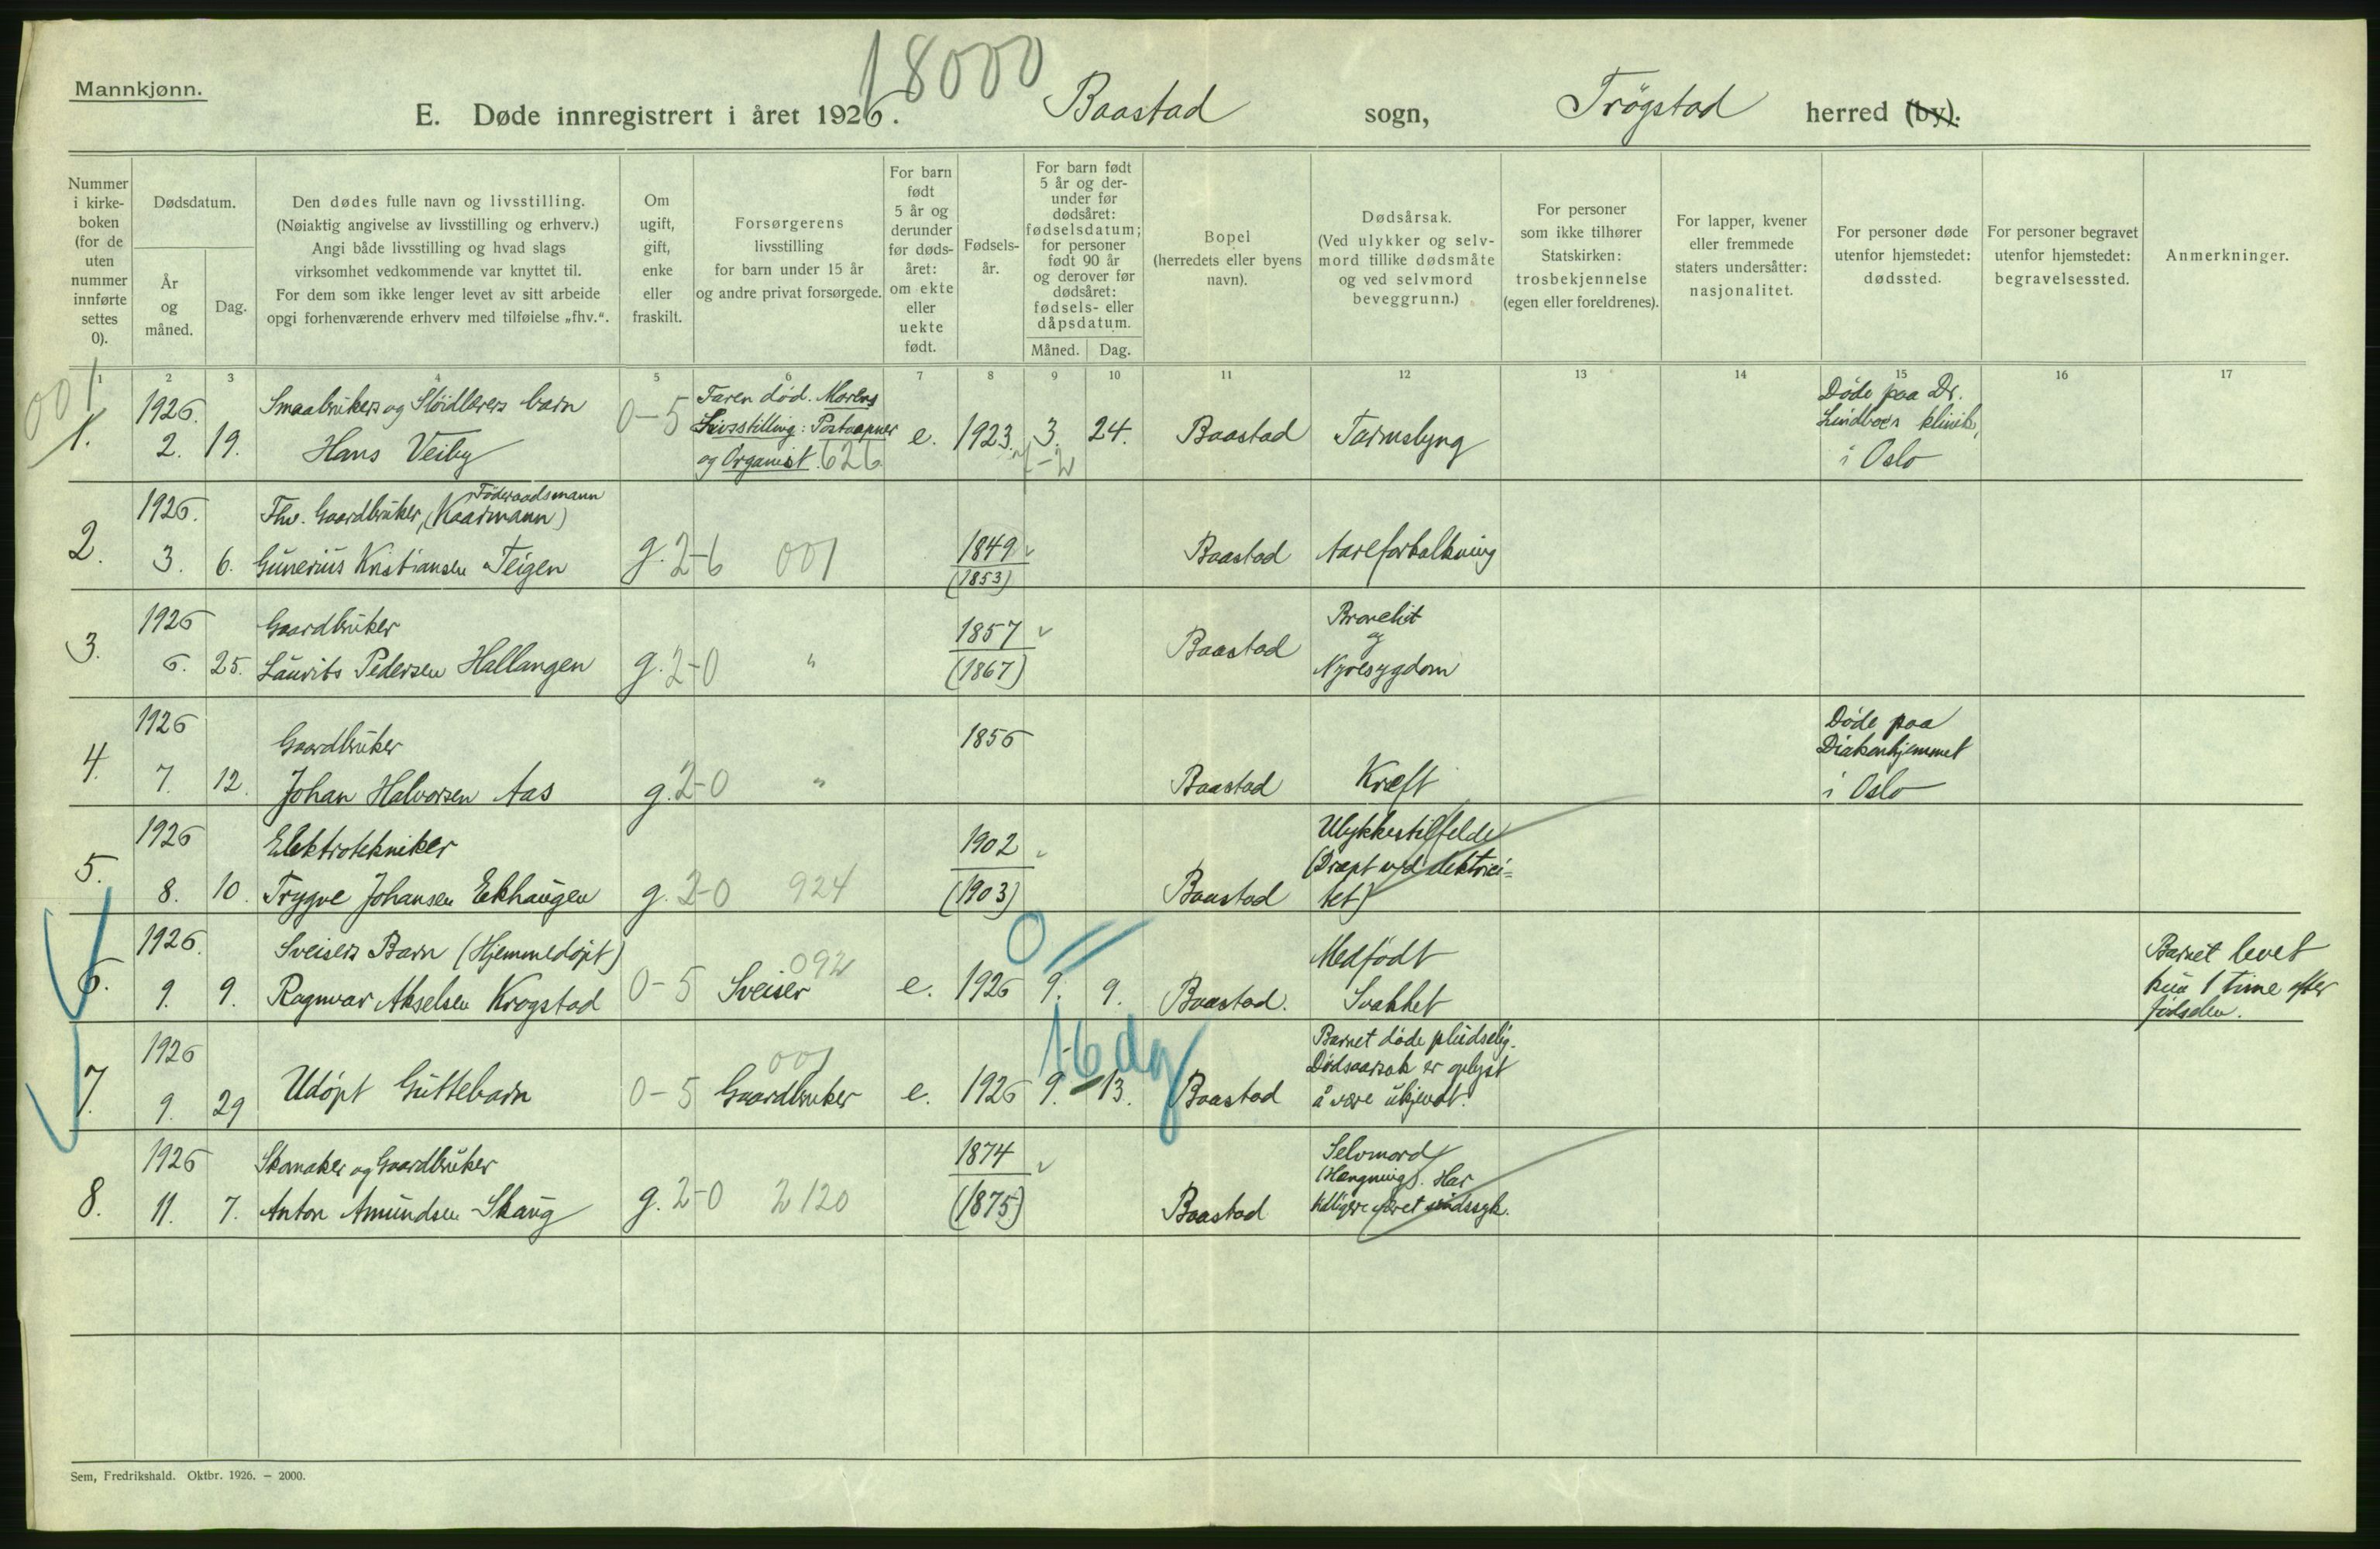 Mannkjønn.
18000
E. Døde innregistrert i året 1926. Baastad sogn, Trøgstad herred (by).
Nummer
i kirke-
boken
(for de
uten
nummer
innførte
settes
0).
Dødsdatum.
År
og
måned.
Dag.
Den dødes fulle navn og livsstilling.
(Nøiaktig angivelse av livsstilling og erhverv.)
Angi både livsstilling og hvad slags
virksomhet vedkommende var knyttet til.
For dem som ikke lenger levet av sitt arbeide
opgi forhenværende erhverv med tilføielse „fhv.“.
Om
ugift,
gift,
enke
eller
fraskilt.
Forsørgerens
livsstilling
for barn under 15 år
og andre privat forsørgede.
For barn
født
5 år og
derunder
før døds-
året:
om ekte
eller
uekte
født.
Fødsels-
år.
For barn født
5 år og der-
under før
dødsåret:
fødselsdatum;
for personer
født 90 år
og derover før
dødsåret:
fødsels- eller
dåpsdatum.
Måned. Dag.
Bopel
(herredets eller byens
navn).
Dødsårsak.
(Ved ulykker og selv-
mord tillike dødsmåte
og ved selvmord
beveggrunn.)
For personer
som ikke tilhører
Statskirken:
trosbekjennelse
(egen eller foreldrenes).
For lapper, kvener
eller fremmede
staters undersåtter:
nasjonalitet.
For personer døde
utenfor hjemstedet:
dødssted.
For personer begravet
utenfor hjemstedet:
begravelsessted.
Anmerkninger.
1 2 3 4 5 6 7 8 9 10 11 12 13 14 15 16 17
001
1.
1926.
2. 19.
Smaabrukers og Sløidlærers barn
Hans Veiby
0-5
Faren død. Morens
Livsstilling: Postaapner
og Organist. 626
e. 1923. 3. 24.
2
Baastad
Tarmslyng
Døde paa Dr.
Lindboes klinik,
i Oslo
2.
1926.
3. 6.
Føderaadsmann
Fhv. Gaardbruker, (Kaarmann)
Gunerius Kristiansen Teigen
g. 2-6 001
1849
(1853)
Baastad
Aareforkalkning
3.
1926
6. 25.
Gaardbruker
Laurits Pedersen Hallangen
g. 2-0 "
1857
(1867)
Baastad
Bronchit
og
Nyresygdom
4.
1926
7. 12.
Gaardbruker
Johan Halvorsen Aas
g. 2-0 "
1856
Baastad
Kræft
Døde paa
Diakonhjemmet
i Oslo
5.
1926
8. 10.
Elektrotekniker
Trygve Johansen Ekhaugen
g. 2-0 924
1902
(1903)
Baastad
Ulykkestilfelde
(Dræpt ved elektrici-
tet)
6.
1926.
9. 9.
Sveisers Barn (Hjemmedøpt)
Ragnvar Akselsen Krogstad
0-5
092
Sveiser
e. 1926 9. 9.
0
Baastad.
Medfødt
Svakhet
Barnet levet
kun 1 time efter
fødselen.
7.
1926
9. 29
Udøpt Guttebarn
0-5
001
Gaardbruker
e. 1926 9. 13.
16 dg
Baastad
Barnet døde pludselig.
Dødsaarsak er oplyst
å være ukjendt.
8.
1926
11. 7.
Skomaker og Gaardbruker
Anton Amundsen Skaug
g. 2-0 2120
1874
(1875)
Baastad
Selvmord
(Hængning). Har
tidligere været sindssyk.
Sem, Fredrikshald. Oktbr. 1926. – 2000.